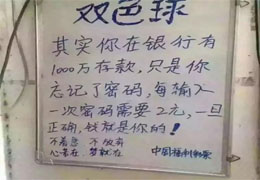 双色球
其实你在银行有
1000万存款，只是你
忘记了密码，每输入
一次密码需要2元，一旦
正确，钱就是你的！
不着急 不放弃
心若在 梦就在
中国福利彩票